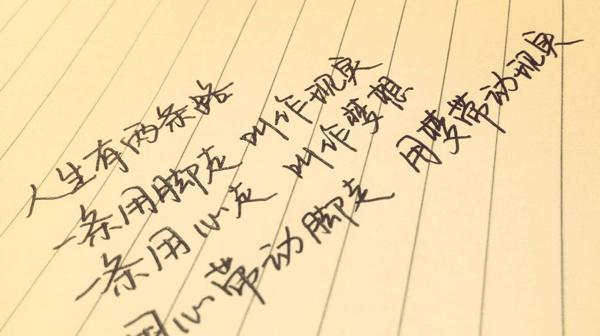 人生有两条路
一条用脚走 叫作现实
一条用心走 叫作梦想
用心带动脚走 用梦带动现实